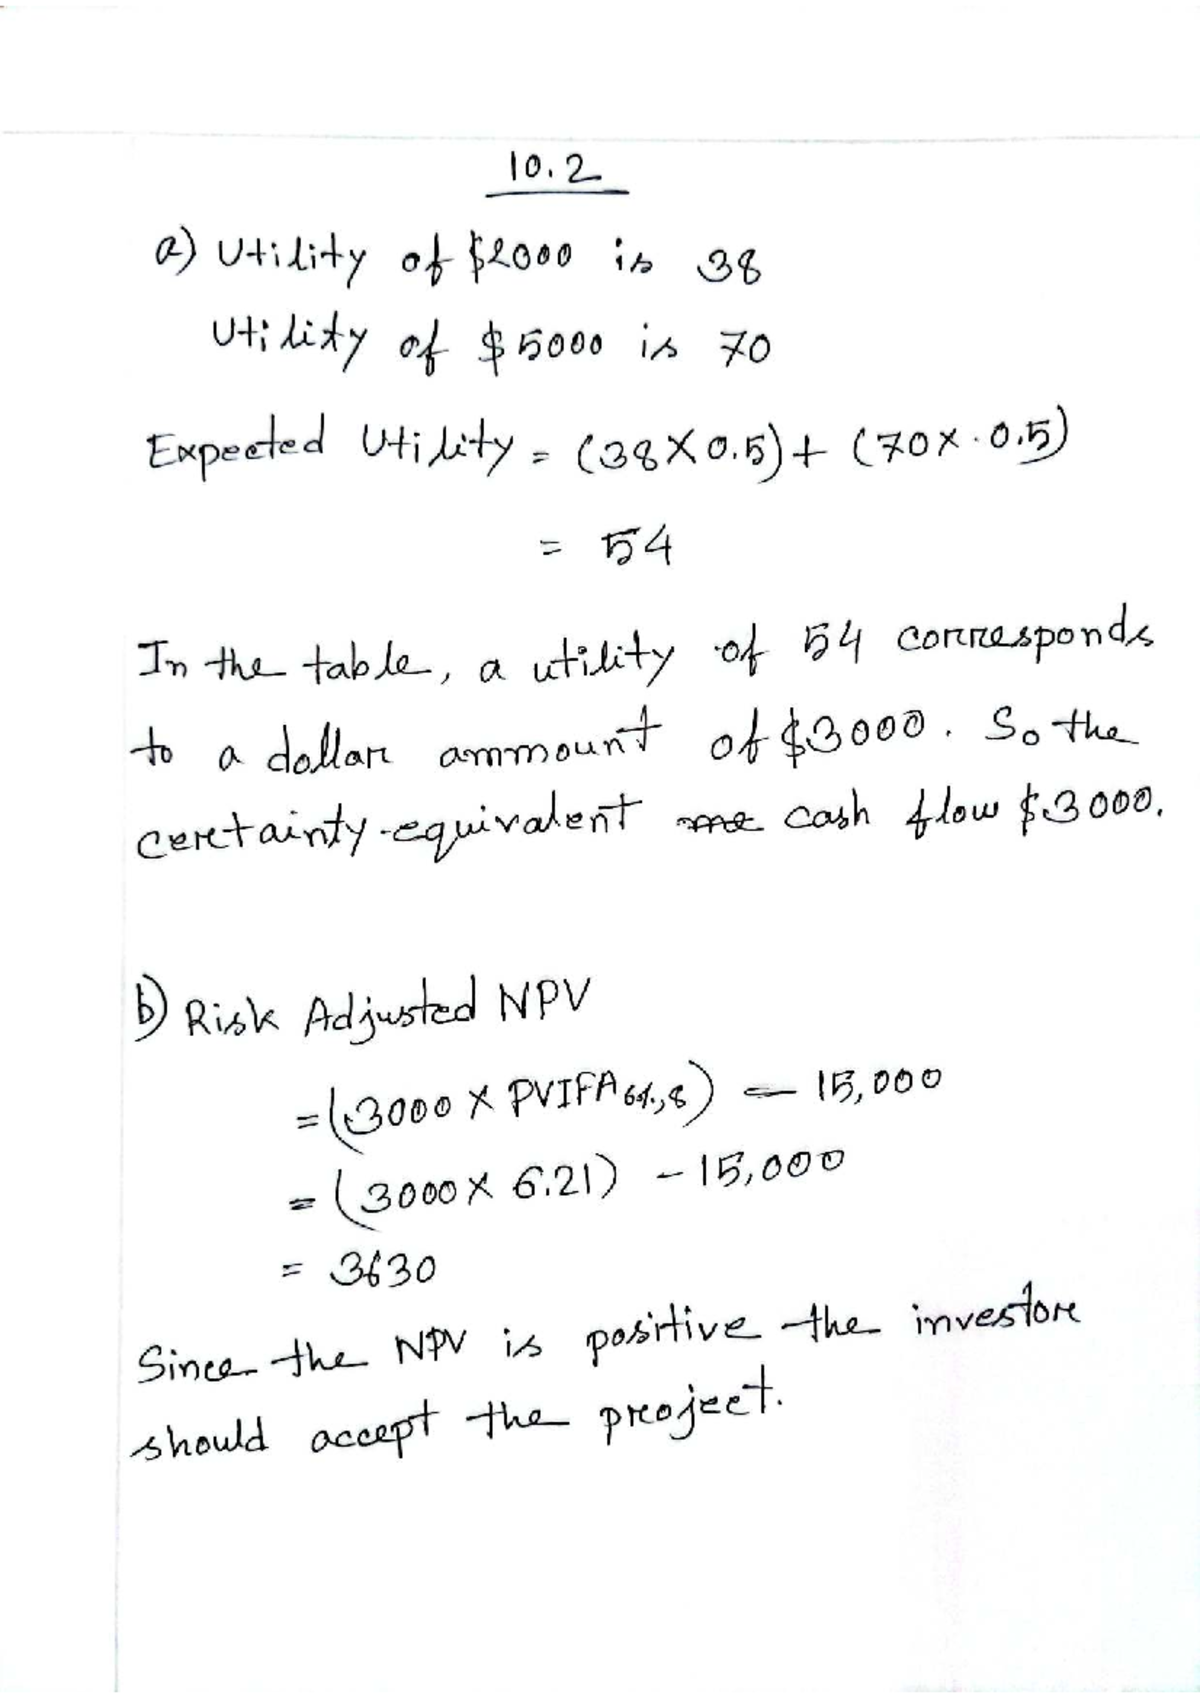 10.2
a) Utility of $2000 is 38
Utility of $5000 is 70
Expected Utility = (38 X 0.5) + (70 x 0.5)
= 54
In the table, a utility of 54 corresponds
to a dollar ammount of $3000. So the
certainty-equivalent cash flow $3000.
b) Risk Adjusted NPV
= (3000 X PVIFA 6%,8) - 15,000
= (3000 X 6.21) - 15,000
= 3630
Since the NPV is positive the investore
should accept the project.